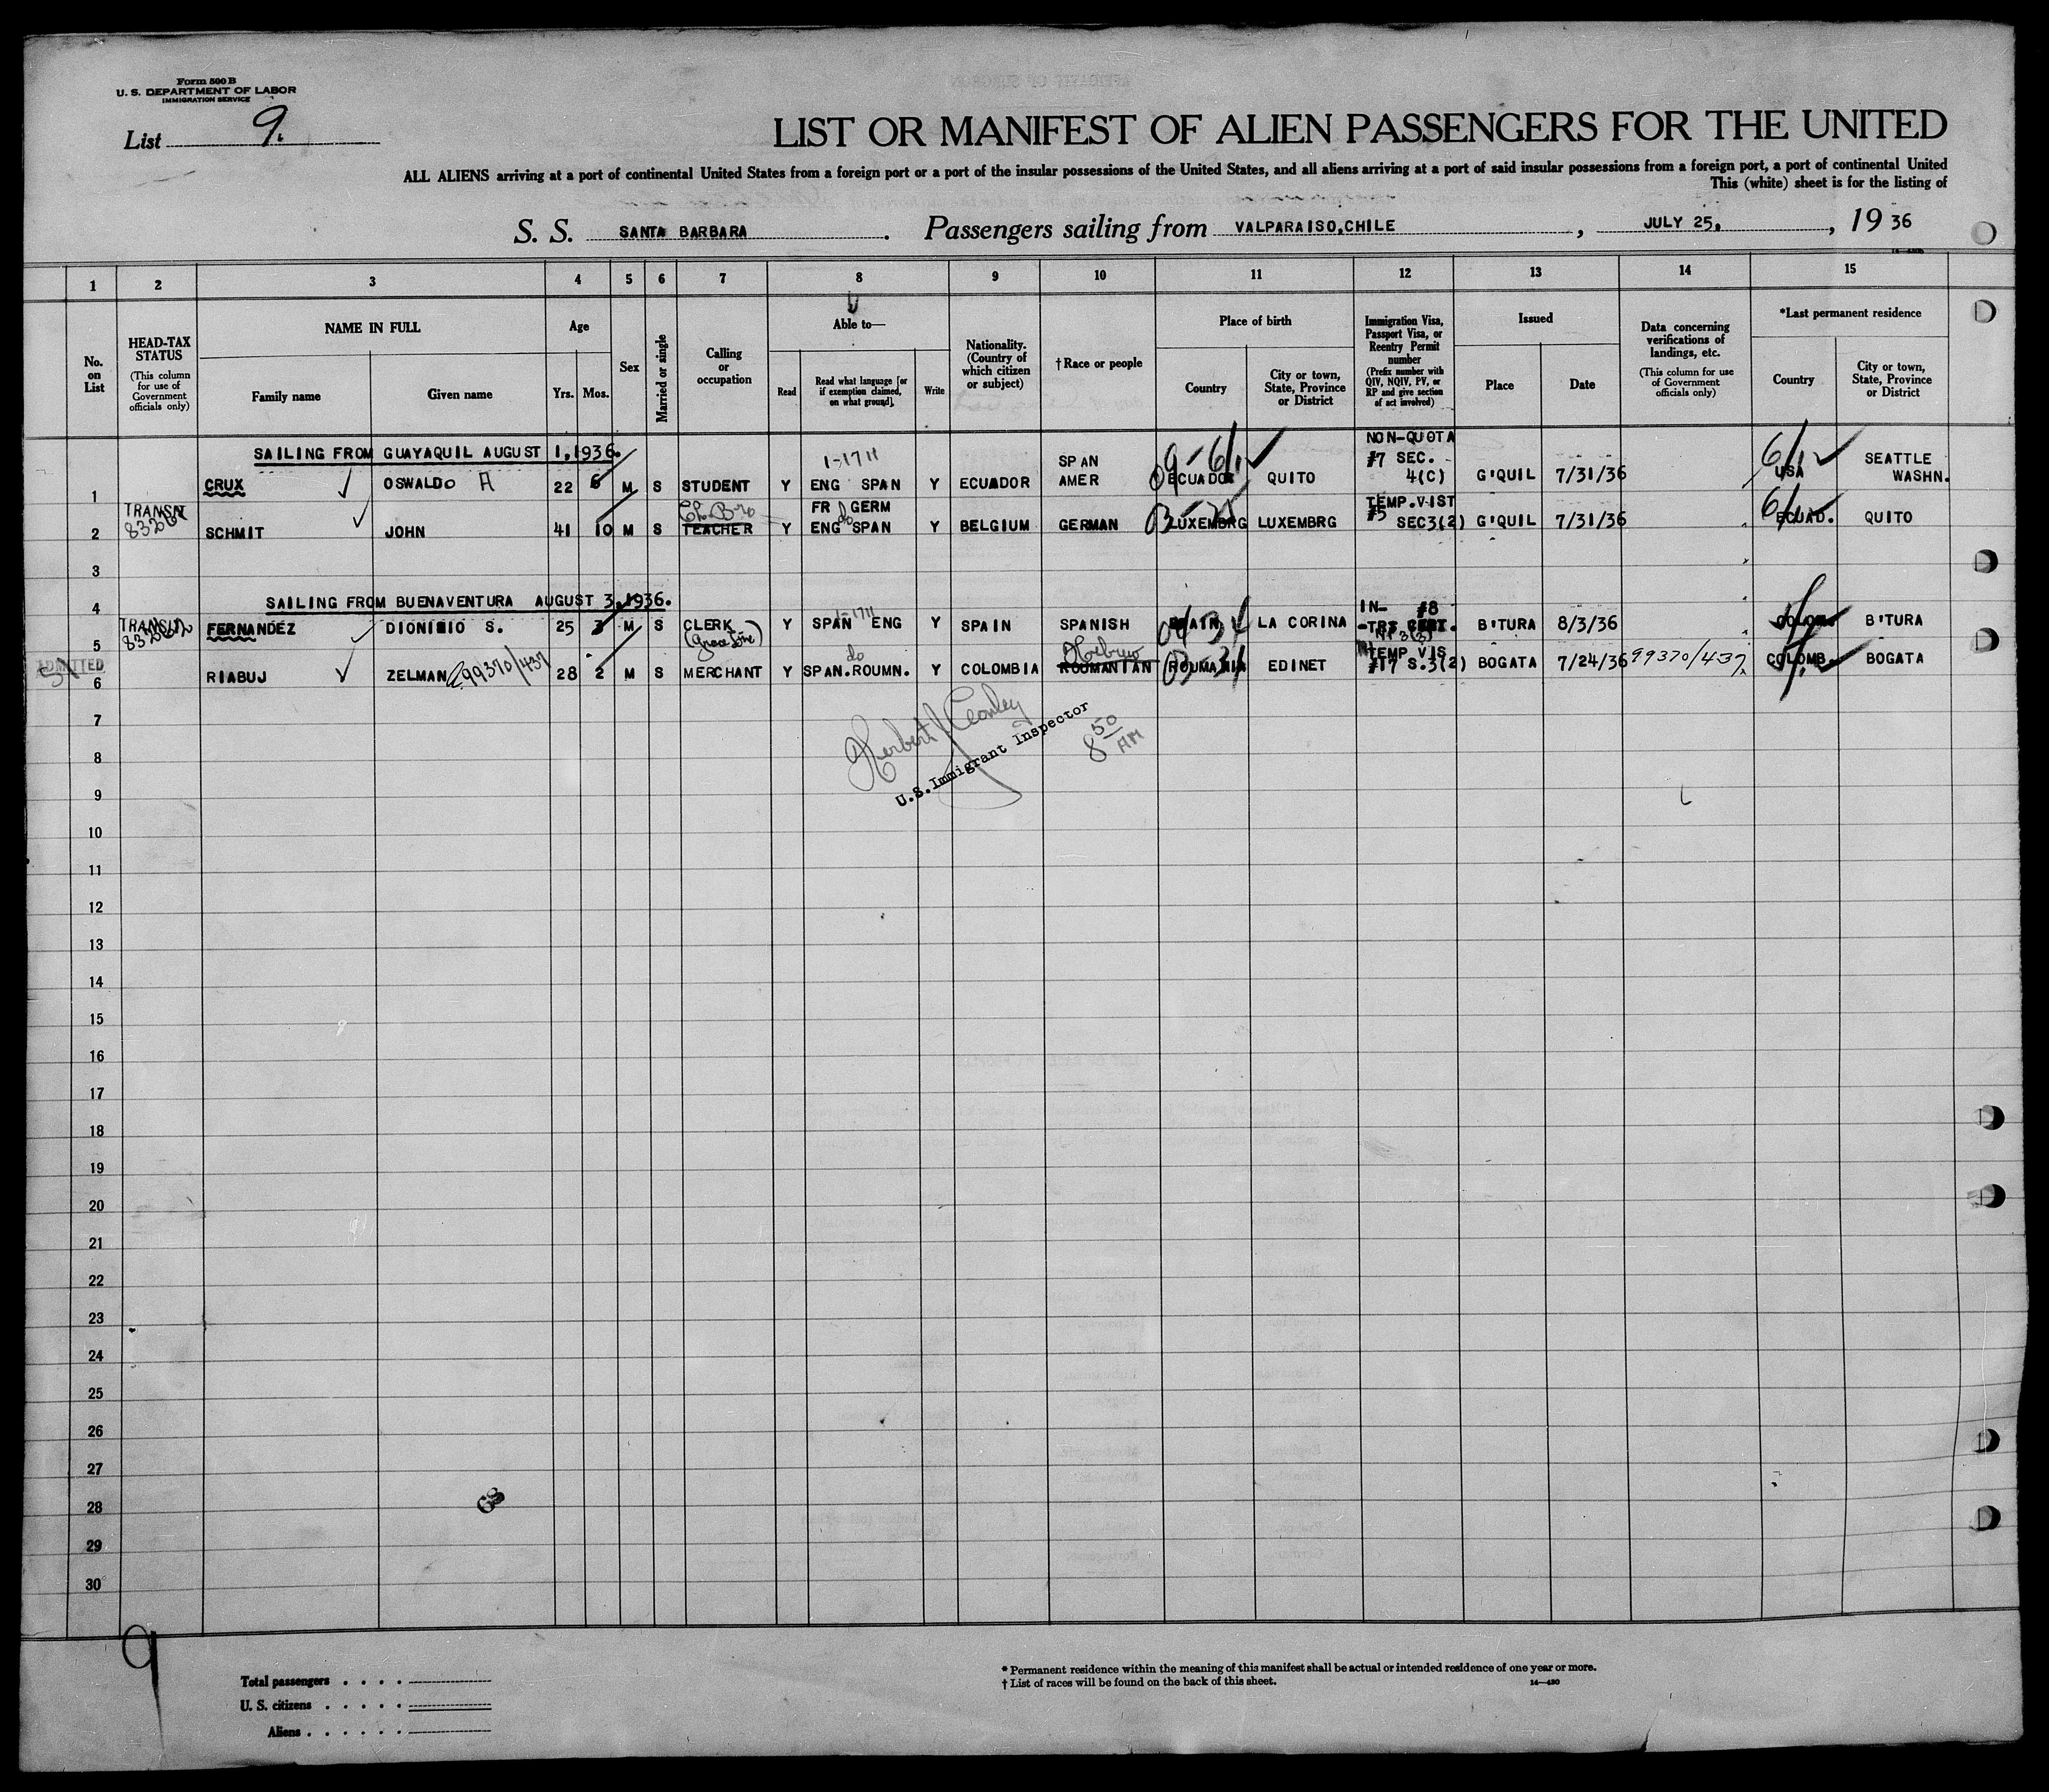 Form 500 B
U. S. DEPARTMENT OF LABOR
IMMIGRATION SERVICE
List 9.
LIST OR MANIFEST OF ALIEN PASSENGERS FOR THE UNITED
ALL ALIENS arriving at a port of continental United States from a foreign port or a port of the insular possessions of the United States, and all aliens arriving at a port of said insular possessions from a foreign port, a port of continental United
This (white) sheet is for the listing of
S. S. SANTA BARBARA. Passengers sailing from VALPARAISO,CHILE, JULY 25, , 19 36
1 2 3 4 5 6 7 8 9 10 11 12 13 14 15
No. on List
HEAD-TAX STATUS (This column for use of Government officials only)
NAME IN FULL
Family name Given name
Age
Yrs. Mos.
Sex
Married or single
Calling or occupation
Able to—
Read Read what language [or if exemption claimed, on what ground] Write
Nationality. (Country of which citizen or subject)
† Race or people
Place of birth
Country City or town, State, Province or District
Immigration Visa, Passport Visa, or Reentry Permit number (Prefix number with QIV, NQIV, PV, or RP and give section of act involved)
Issued
Place Date
Data concerning verifications of landings, etc. (This column for use of Government officials only)
*Last permanent residence
Country City or town, State, Province or District
SAILING FROM GUAYAQUIL AUGUST 1,1936.
1 CRUX OSWALDO A 22 6 M S STUDENT Y ENG SPAN Y ECUADOR SPAN AMER ECUADOR QUITO NON-QUOTA #7 SEC. 4(C) G'QUIL 7/31/36 USA SEATTLE WASHN.
2 TRANSIT SCHMIT JOHN 41 10 M S TEACHER Y FR GERM ENG SPAN Y BELGIUM GERMAN LUXEMBRG LUXEMBRG TEMP.VIST #5 SEC3(2) G'QUIL 7/31/36 ECUAD. QUITO
3
4 SAILING FROM BUENAVENTURA AUGUST 3,1936.
5 TRANSIT FERNANDEZ DIONISIO S. 25 3 M S CLERK (Grace Line) Y SPAN ENG Y SPAIN SPANISH SPAIN LA CORINA IN- #8 -TRS CERT. B'TURA 8/3/36 COLOM. B'TURA
6 ADMITTED RIABUJ ZELMAN 99370/437 28 2 M S MERCHANT Y SPAN.ROUMN. Y COLOMBIA ROUMANIAN Hebrew ROUMANIA EDINET TEMP VIS #17 S.3(2) BOGATA 7/24/36 99370/437 COLOMB. BOGATA
7
Herbert Conley
U.S.Immigrant Inspector
8 50 AM
8
9
10
11
12
13
14
15
16
17
18
19
20
21
22
23
24
25
26
27
28
29
30
9
Total passengers . . . .
U. S. citizens . . . . .
Aliens . . . . . .
* Permanent residence within the meaning of this manifest shall be actual or intended residence of one year or more.
† List of races will be found on the back of this sheet.
14—430